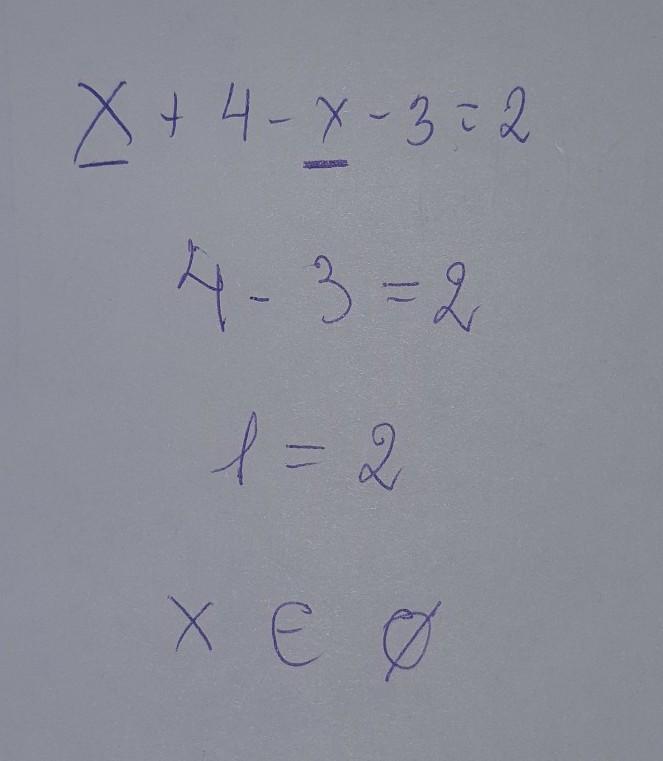 x + 4 - x - 3 = 2
4 - 3 = 2
1 = 2
x ∈ ∅